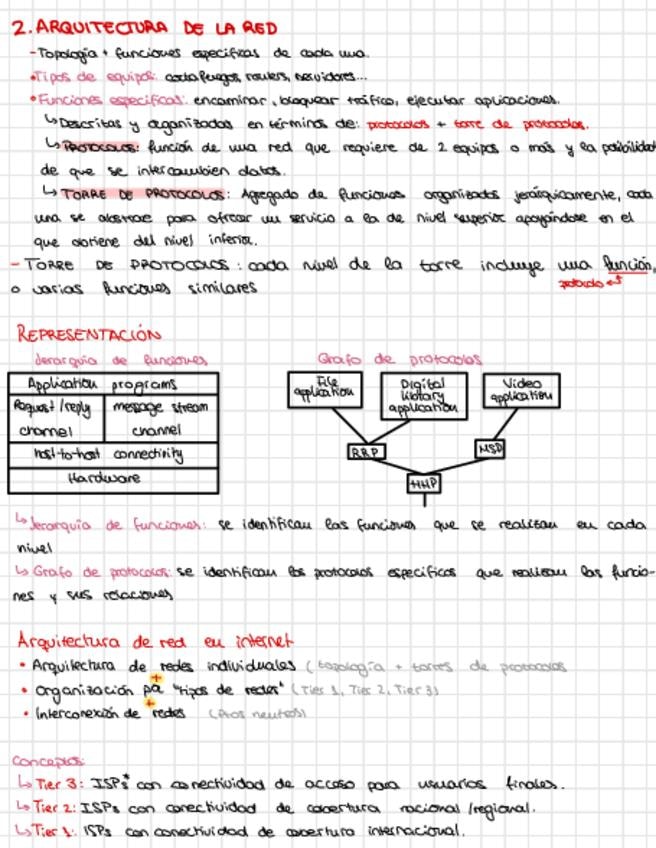 2. ARQUITECTURA DE LA RED
- Topología + funciones específicas de cada una.
• Tipos de equipos: cortafuegos, routers, servidores...
• Funciones específicas: encaminar, bloquear tráfico, ejecutar aplicaciones.
↳ Descritas y organizadas en términos de: protocolos + torre de protocolos.
↳ PROTOCOLOS: función de una red que requiere de 2 equipos o más y la posibilidad
de que se intercambien datos.
↳ TORRE DE PROTOCOLOS: Agregado de funciones organizados jerárquicamente, cada
una se abstrae para ofrecer un servicio a la de nivel superior apoyándose en el
que obtiene del nivel inferior.
- TORRE DE PROTOCOLOS: cada nivel de la torre incluye una función,
o varias funciones similares
protocolo ↵
REPRESENTACIÓN
Jerarquía de funciones
Grafo de protocolos
Application programs
Request/reply channel
message stream channel
host-to-host connectivity
Hardware
File application
Digital library application
Video application
RRP
MSP
HHP
↳ Jerarquía de funciones: se identifican las funciones que se realizan en cada
nivel
↳ Grafo de protocolos: se identifican los protocolos específicos que realizan las funcio-
nes y sus relaciones
Arquitectura de red en internet
• Arquitectura de redes individuales (topología + torres de protocolos
+
• Organización por "tipos de redes" (Tier 1, Tier 2, Tier 3)
+
• Interconexión de redes (Ptos neutros)
Conceptos:
↳ Tier 3: ISPs* con conectividad de acceso para usuarios finales.
↳ Tier 2: ISPs con conectividad de cobertura nacional/regional.
↳ Tier 1: ISPs con conectividad de cobertura internacional.